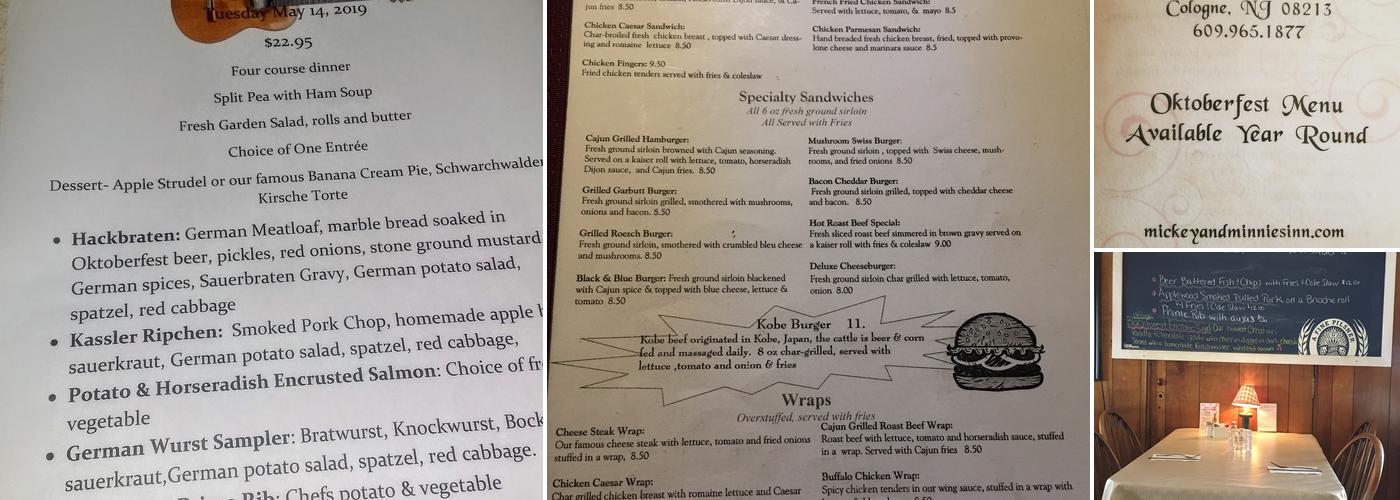 Tuesday May 14, 2019
$22.95
Four course dinner
Split Pea with Ham Soup
Fresh Garden Salad, rolls and butter
Choice of One Entrée
Dessert- Apple Strudel or our famous Banana Cream Pie, Schwarchwalder
Kirsche Torte
• Hackbraten: German Meatloaf, marble bread soaked in
Oktoberfest beer, pickles, red onions, stone ground mustard
German spices, Sauerbraten Gravy, German potato salad,
spatzel, red cabbage
• Kassler Ripchen: Smoked Pork Chop, homemade apple
sauerkraut, German potato salad, spatzel, red cabbage,
• Potato & Horseradish Encrusted Salmon: Choice of
vegetable
• German Wurst Sampler: Bratwurst, Knockwurst, Bock
sauerkraut,German potato salad, spatzel, red cabbage.
Rib: Chefs potato & vegetable
jun fries 8.50
Chicken Caesar Sandwich:
Char-broiled fresh chicken breast , topped with Caesar dress-
ing and romaine lettuce 8.50
Chicken Fingers: 9.50
Fried chicken tenders served with fries & coleslaw
French Fried Chicken Sandwich:
Served with lettuce, tomato, & mayo 8.5
Chicken Parmesan Sandwich:
Hand breaded fresh chicken breast, fried, topped with provo-
lone cheese and marinara sauce 8.5
Specialty Sandwiches
All 6 oz fresh ground sirloin
All Served with Fries
Cajun Grilled Hamburger:
Fresh ground sirloin browned with Cajun seasoning.
Served on a kaiser roll with lettuce, tomato, horseradish
Dijon sauce, and Cajun fries. 8.50
Grilled Garbutt Burger:
Fresh ground sirloin grilled, smothered with mushrooms,
onions and bacon. 8.50
Grilled Roesch Burger:
Fresh ground sirloin, smothered with crumbled bleu cheese
and mushrooms. 8.50
Black & Blue Burger: Fresh ground sirloin blackened
with Cajun spice & topped with blue cheese, lettuce &
tomato 8.50
Mushroom Swiss Burger:
Fresh ground sirloin , topped with Swiss cheese, mush-
rooms, and fried onions 8.50
Bacon Cheddar Burger:
Fresh ground sirloin grilled, topped with cheddar cheese
and bacon. 8.50
Hot Roast Beef Special:
Fresh sliced roast beef simmered in brown gravy served on
a kaiser roll with fries & coleslaw 9.00
Deluxe Cheeseburger:
Fresh ground sirloin char grilled with lettuce, tomato,
onion 8.00
Kobe Burger 11.
Kobe beef originated in Kobe, Japan, the cattle is beer & corn
fed and massaged daily. 8 oz char-grilled, served with
lettuce ,tomato and onion & fries
Wraps
Overstuffed, served with fries
Cheese Steak Wrap:
Our famous cheese steak with lettuce, tomato and fried onions
stuffed in a wrap, 8.50
Chicken Caesar Wrap:
Char grilled chicken breast with romaine lettuce and Caesar
Cajun Grilled Roast Beef Wrap:
Roast beef with lettuce, tomato and horseradish sauce, stuffed
in a wrap. Served with Cajun fries 8.50
Buffalo Chicken Wrap:
Spicy chicken tenders in our wing sauce, stuffed in a wrap with
Cologne, NJ 08213
609.965.1877
Oktoberfest Menu
Available Year Round
mickeyandminniesinn.com
Beer Battered Fish & Chips with Fries & Cole Slaw $12.00
Applewood Smoked Pulled Pork on a Brioche roll
w/ Fries & Cole Slaw
Prime Rib with
Our newest Creation
FINE PILSNER